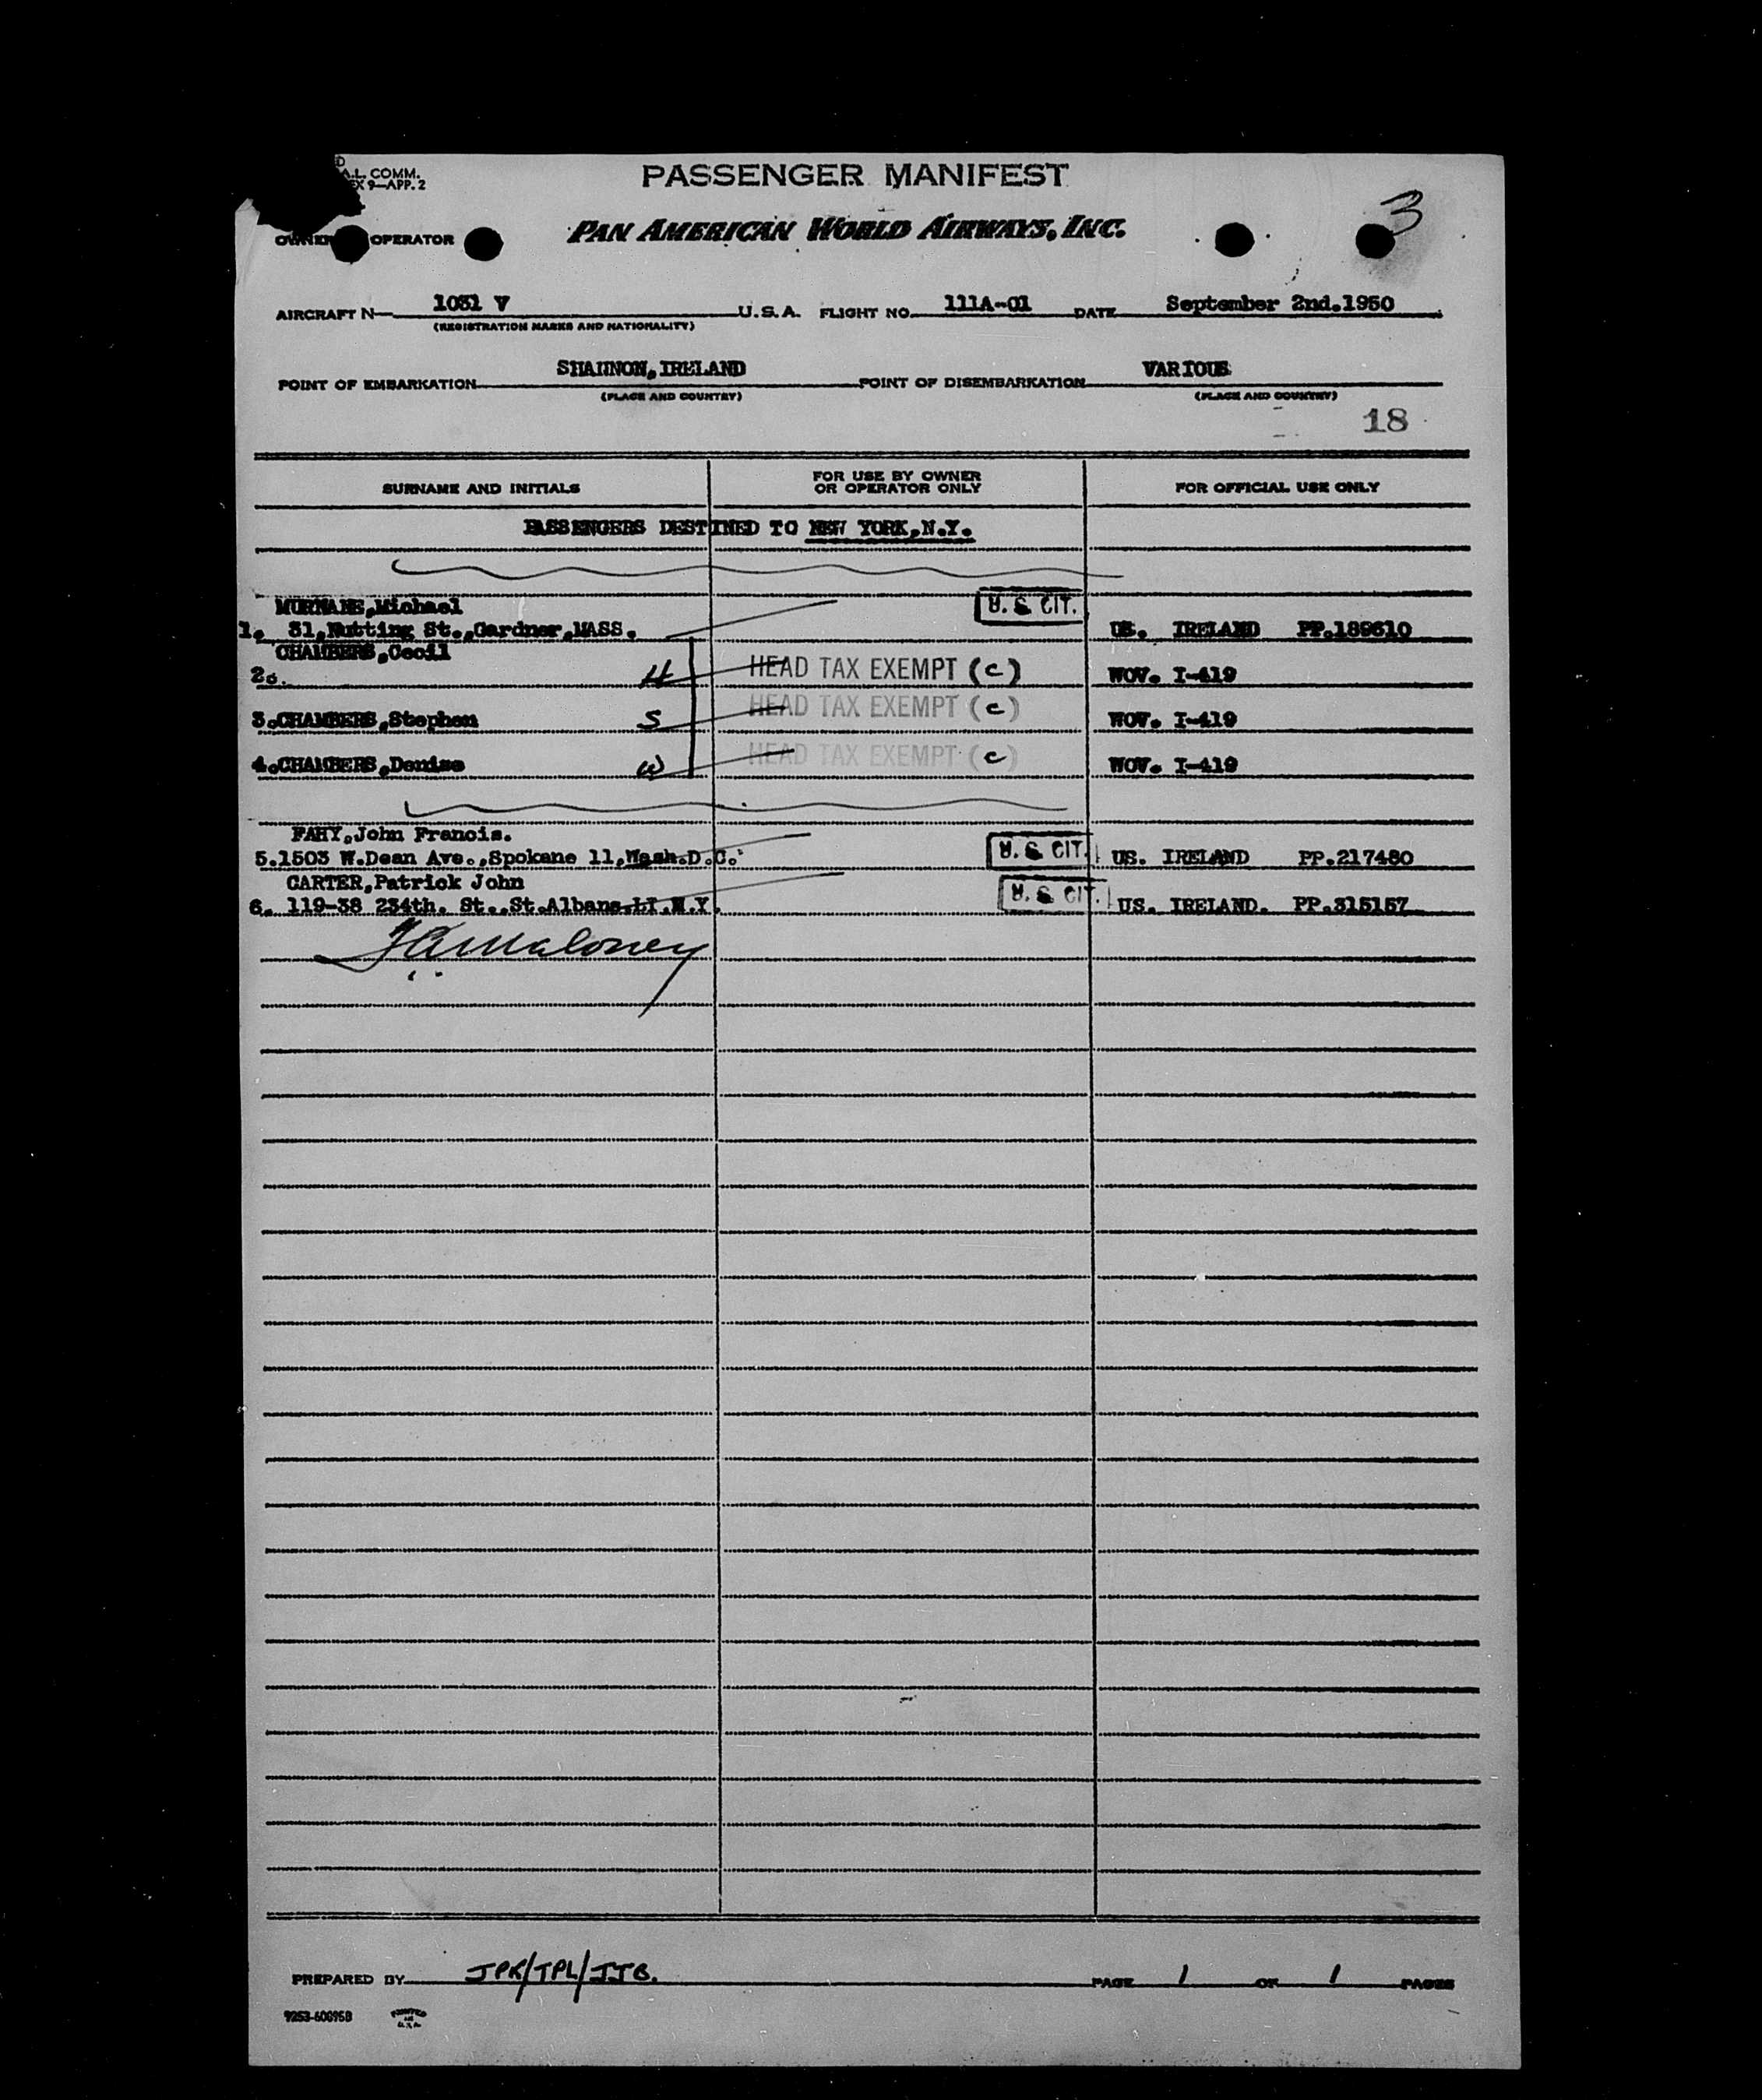 D
A.L. COMM.
EX 9—APP. 2
PASSENGER MANIFEST
3
OWNER OPERATOR PAN AMERICAN WORLD AIRWAYS, INC.
AIRCRAFT N— 1031 V U.S.A. FLIGHT NO. 111A-01 DATE September 2nd.1950
(REGISTRATION MARKS AND NATIONALITY)
POINT OF EMBARKATION SHANNON,IRELAND POINT OF DISEMBARKATION VARIOUS
(PLACE AND COUNTRY) (PLACE AND COUNTRY)
18
SURNAME AND INITIALS FOR USE BY OWNER OR OPERATOR ONLY FOR OFFICIAL USE ONLY
PASSENGERS DESTINED TO NEW YORK,N.Y.
MURNANE,Michael U. S. CIT.
1. 31,Nutting St.,Gardner,MASS. US. IRELAND PP.189610
CHAMBERS,Cecil
2. H HEAD TAX EXEMPT (c) WOV. I-419
3.CHAMBERS,Stephen S HEAD TAX EXEMPT (c) WOV. I-419
4.CHAMBERS,Denise W HEAD TAX EXEMPT (c) WOV. I-419
FAHY,John Francis.
5.1503 W.Dean Ave.,Spokane 11,Wash.D.C. U. S. CIT. US. IRELAND PP.217480
CARTER,Patrick John
6. 119-38 234th. St.,St.Albans.LI.N.Y. U. S. CIT. US. IRELAND. PP.315157
Maloney
PREPARED BY JPK/TPL/JJB. PAGE 1 OF 1 PAGES
9253-60095B PRINTED IN U.S.A.